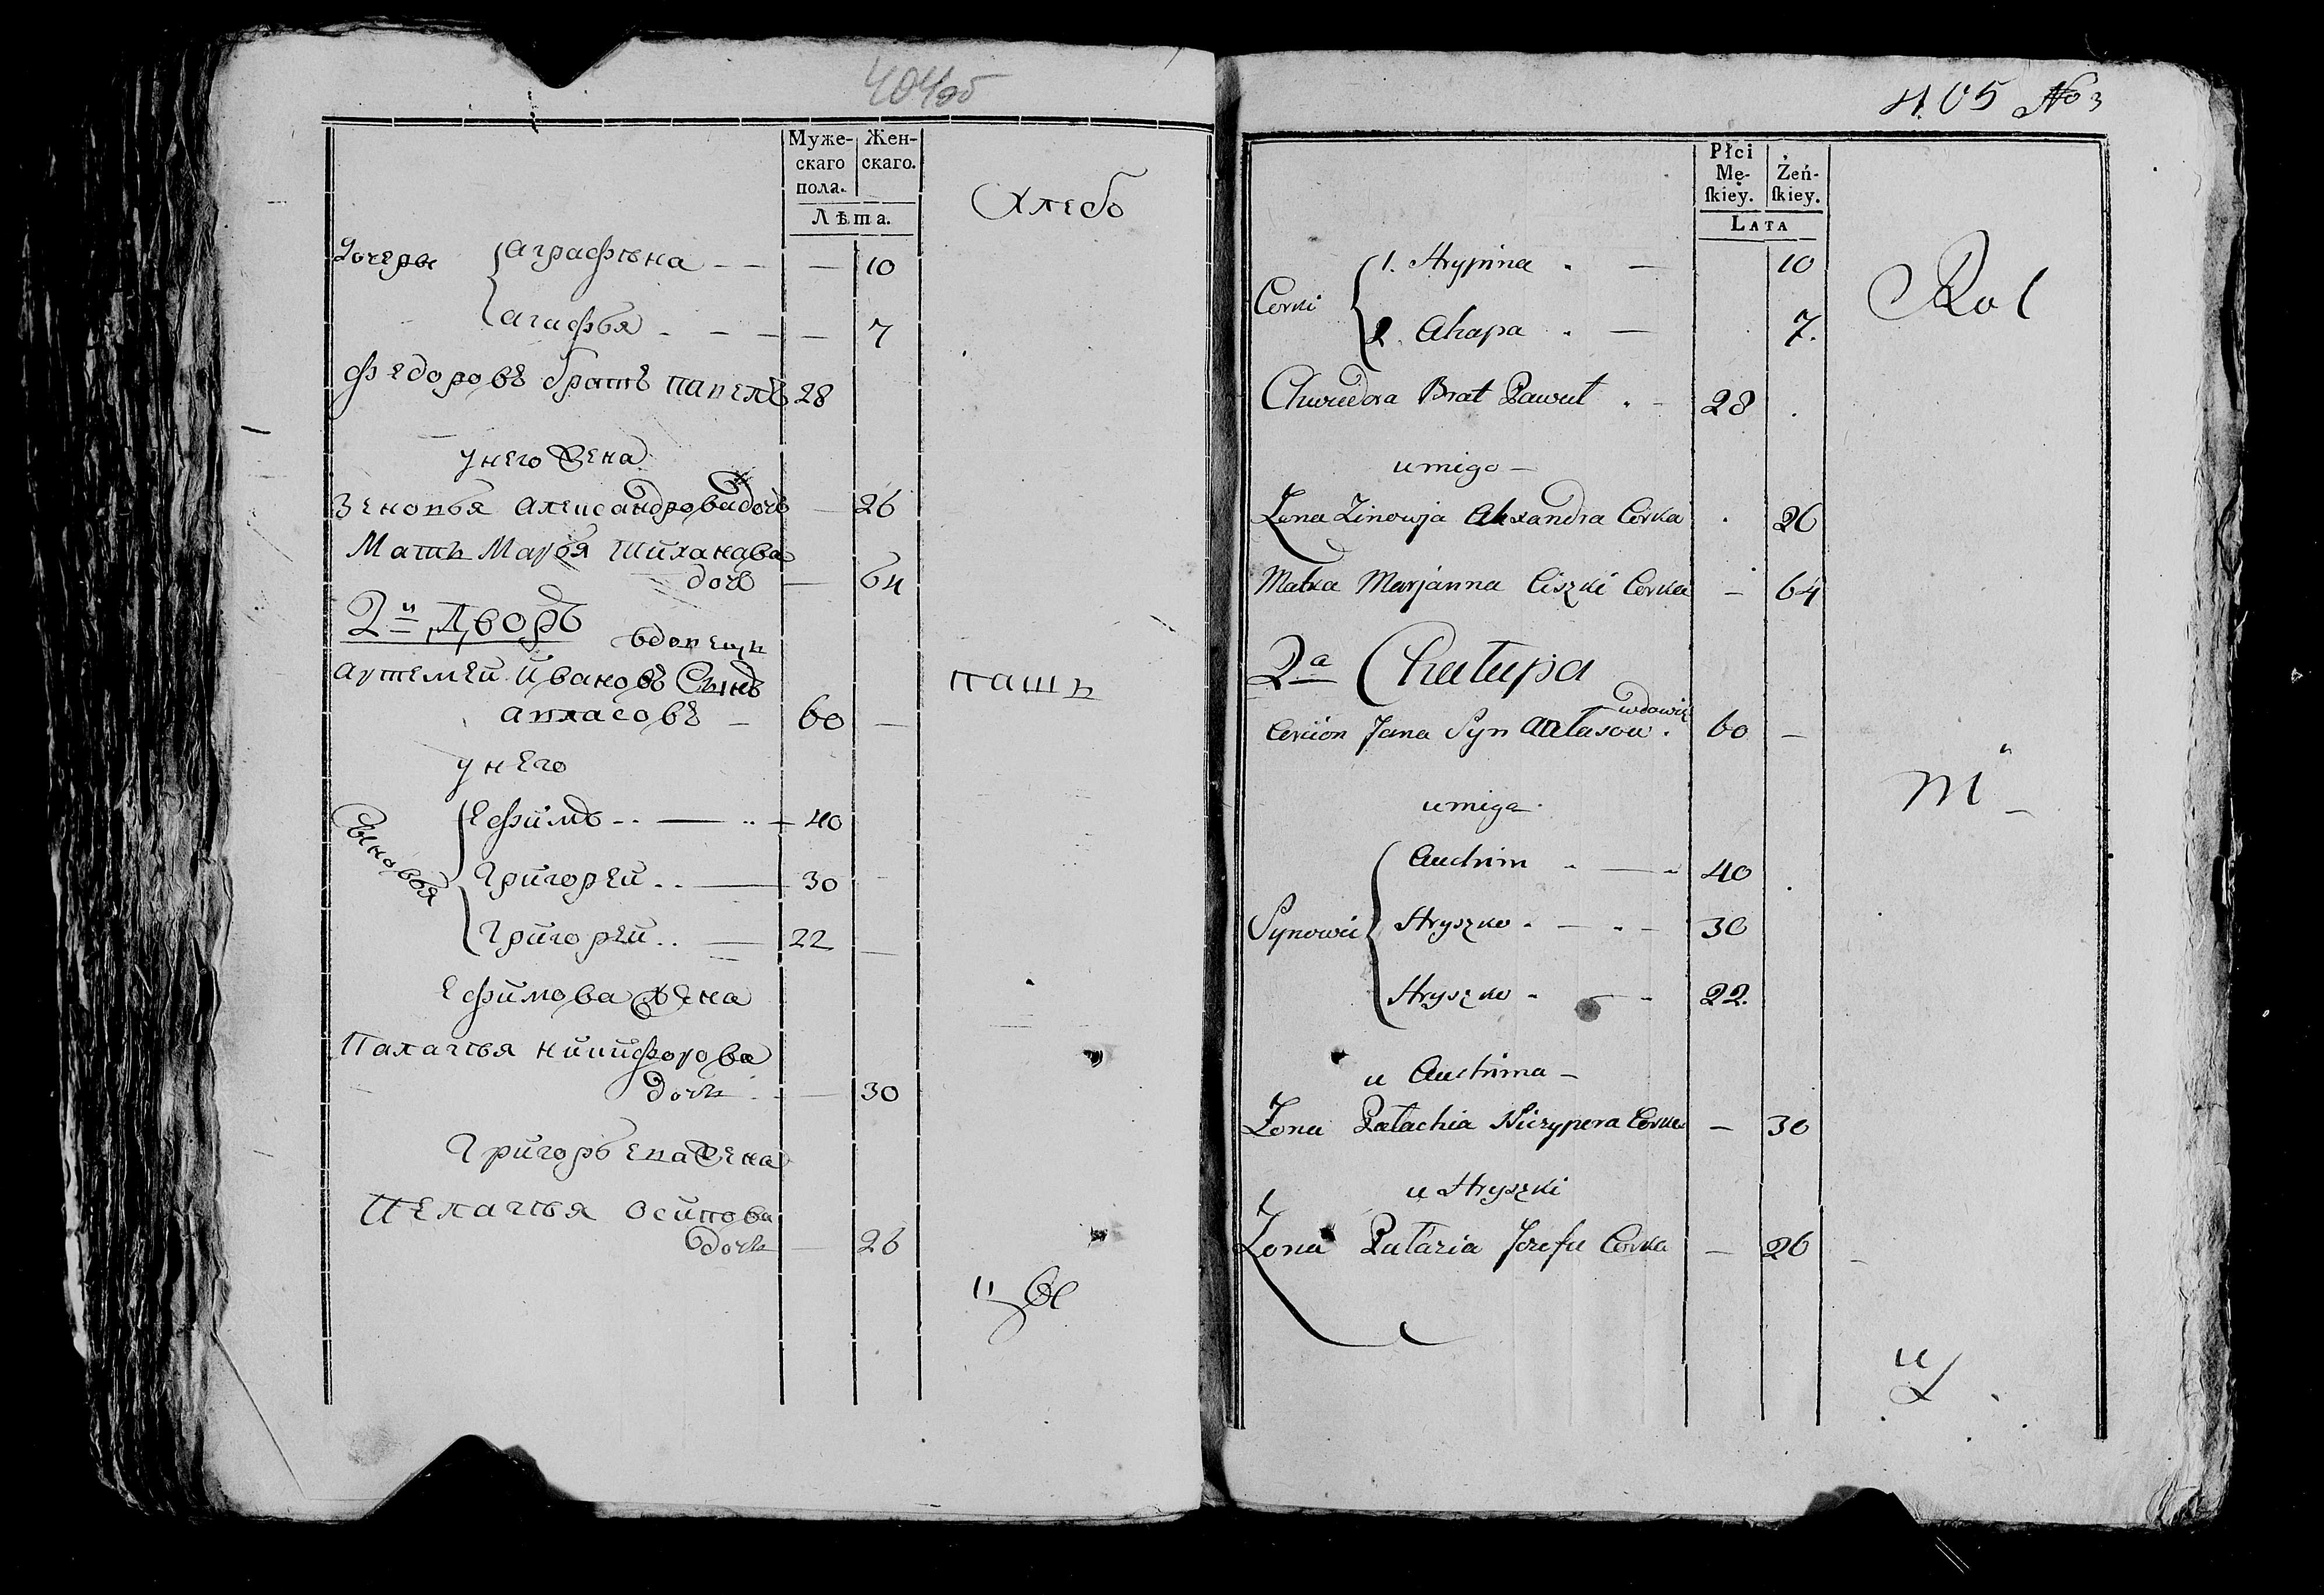 404об
Муже- Жен-
скаго скаго.
пола.
Лѣта.
Хлебо
Дочеры Аграфѣна — — — 10
Агафья - - - — 7
Федоровъ братъ Павелъ 28
у него Жена
Зеновья Александрова дочь — 26
Мать Марья Тиханава
дочь — 64
2й Дворъ вдовецъ
Артемей Ивановъ Сынъ
паш
Атласовъ — 60 —
у него
Сыновья Ефимъ - . . — . . 40
Григорей . . — 30
Григорей . . — 22 —
Ефимова Жена
Палагѣя Никифорова
дочь . . — 30
Григорьева Жена
Пелагѣя Осипова
дочь — 26
405 No 3
Płci Żeń-
Mę- skiey.
skiey.
LATA
Rol
Corki 1. Hrypina . — 10
2. Ahapa . — 7.
Chwiedora Brat Pawuł . - 28 .
u niego —
Zona Zinowja Alexandra Corka . 26
Matka Marjanna Ciszki Corka — 64
2a Chałupa
wdowiec
Cercion Jana Syn Atłasow . 60 —
u niego
Synowie Auchim - — - 40 .
Hryszko - — - - 30
Hryszko - — - 22.
u Auchima —
Zona Pałachia Niczypera Corka — 30
u Hryszki
Zona Pałazia Jozefa Corka — 26